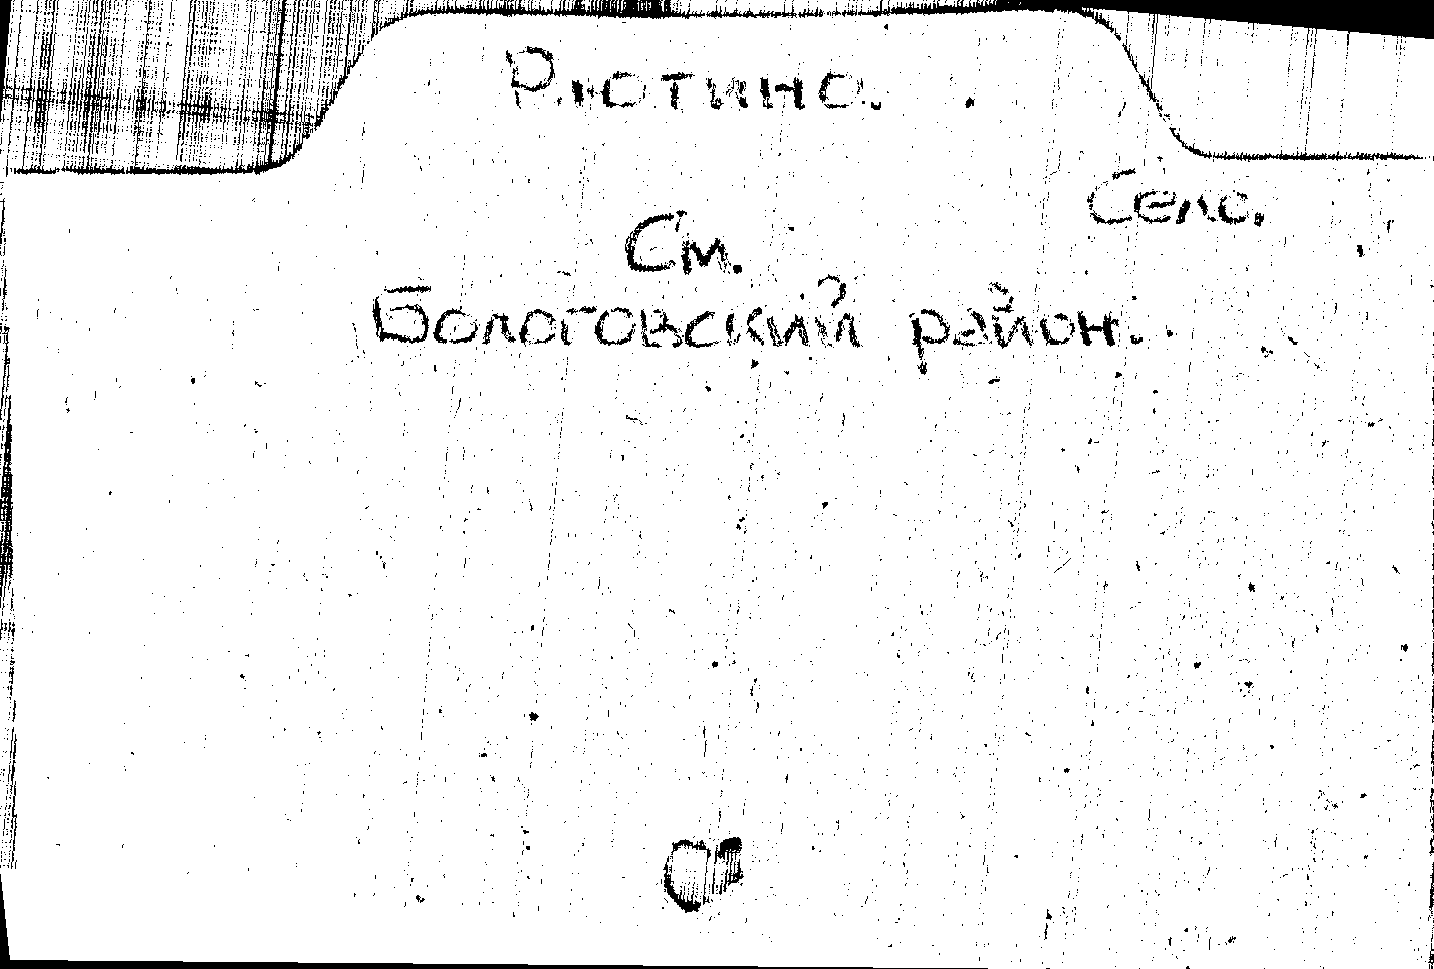 Рютино.
Село.
См.
Бологовский район.